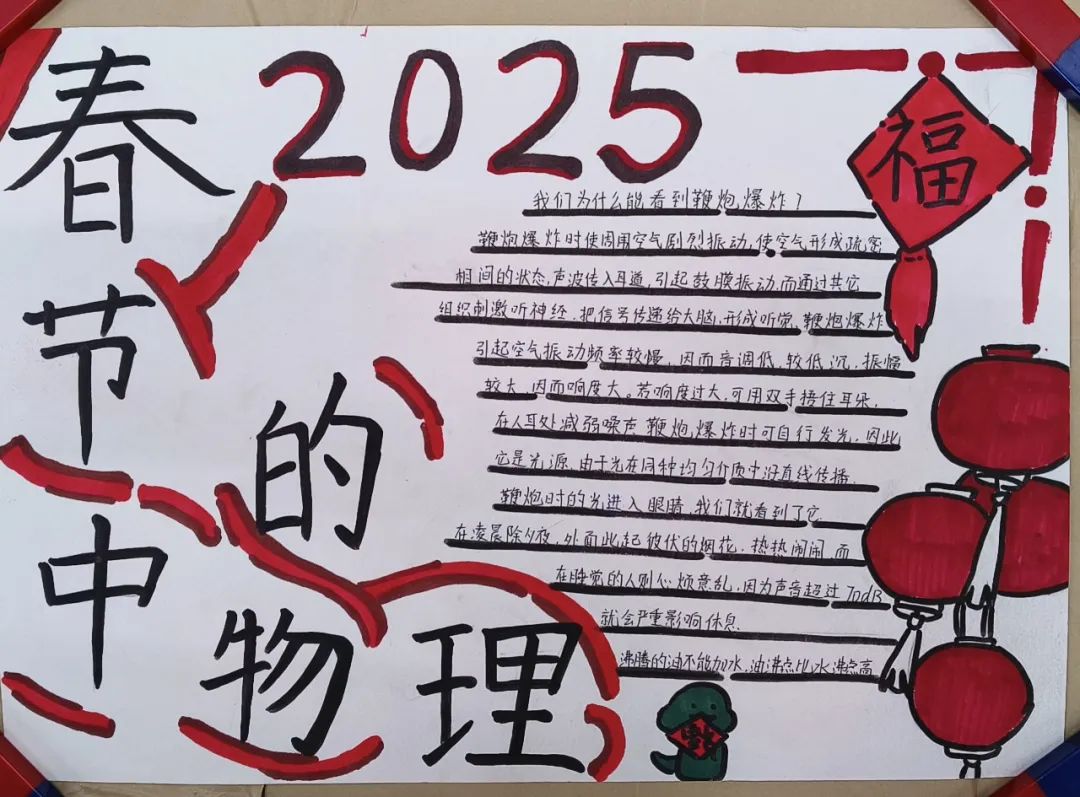 春节中的物理
2025
福
我们为什么能看到鞭炮爆炸?
鞭炮爆炸时使周围空气剧烈振动,使空气形成疏密
相间的状态,声波传入耳道,引起鼓膜振动,而通过其它
组织刺激听神经,把信号传递给大脑,形成听觉,鞭炮爆炸
引起空气振动频率较慢,因而音调低,较低沉,振幅
较大,因而响度大。若响度过大,可用双手捂住耳朵,
在人耳处减弱噪声 鞭炮爆炸时可自行发光,因此
它是光源,由于光在同种均匀介质中沿直线传播,
鞭炮时的光进入眼睛,我们就看到了它
在凌晨除夕夜,外面此起彼伏的烟花,热热闹闹,而
在睡觉的人则心烦意乱,因为声音超过70dB
就会严重影响休息.
沸腾的油不能加水,油沸点比水沸点高